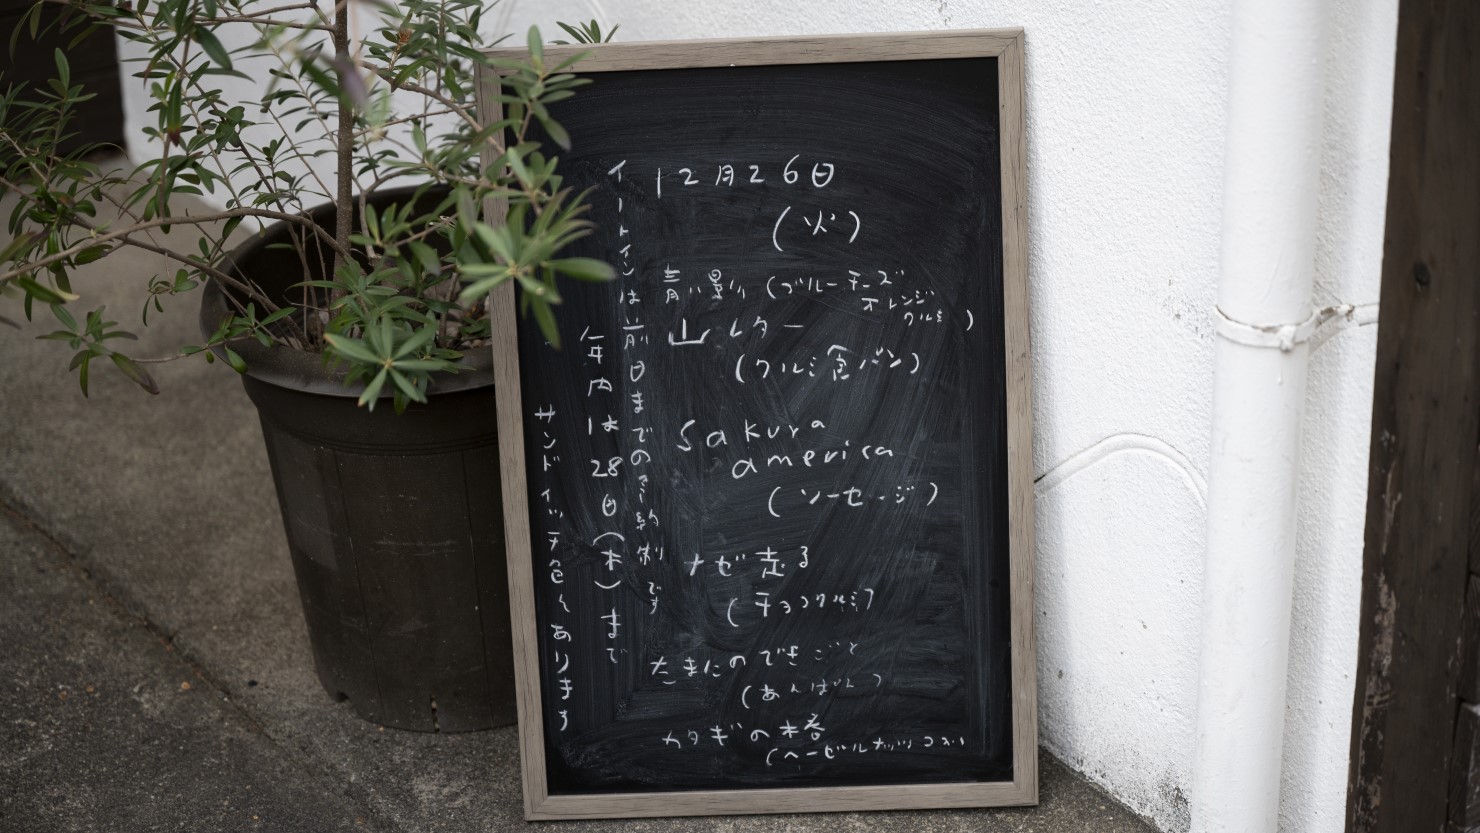 12月26日
(火)
青い影り(ブルーチーズ
オレンジ
クルミ)
山レター
(クルミ食パン)
Sakura
america
(ソーセージ)
ナゼ走る
(チョコクルミ)
たまにのできごと
(あんぱん)
カタギの木春
(ヘーゼルナッツココい
イートインは前日までの予約制です
年内は28日(木)まで
サンドイッチ色々あります